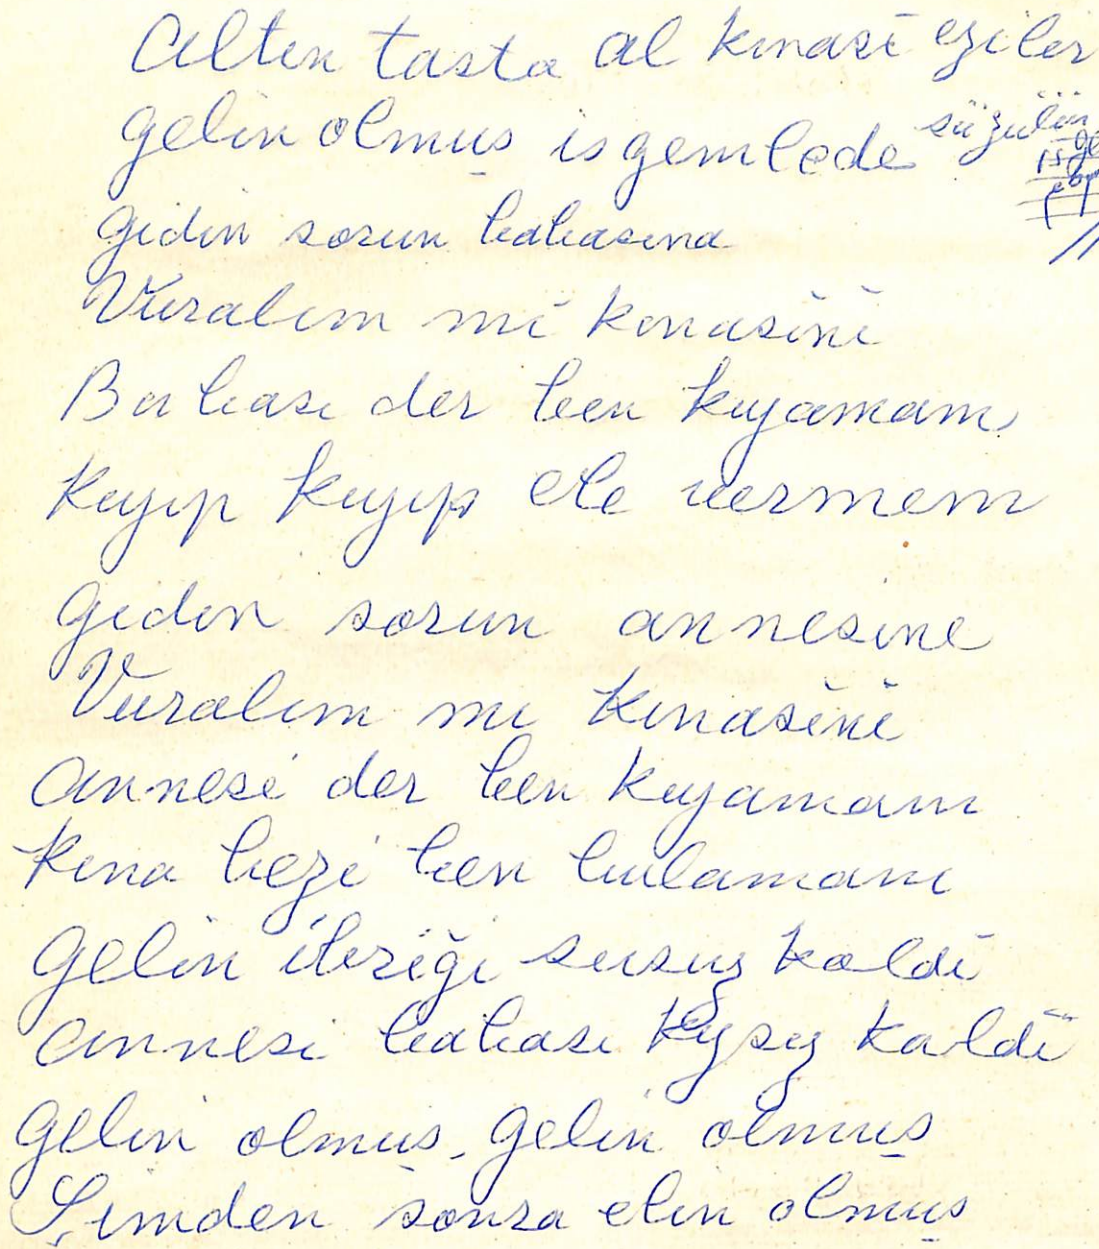 Altın tasta al kınası ezilir
gelin olmuş isgemlede süzülür
gidin sorun babasına
Vuralım mi kınasıni
Babası der ben kıyamam
kıyıp kıyıp ele vermem
gidin sorun annesine
Vuralım mı kınasıni
annesi der ben kıyamam
kına bezi ben bulamam
gelin ibriği susuz kaldi
annesi babası kızsız kaldi
gelin olmuş, gelin olmuş
Şimden sonra elin olmuş